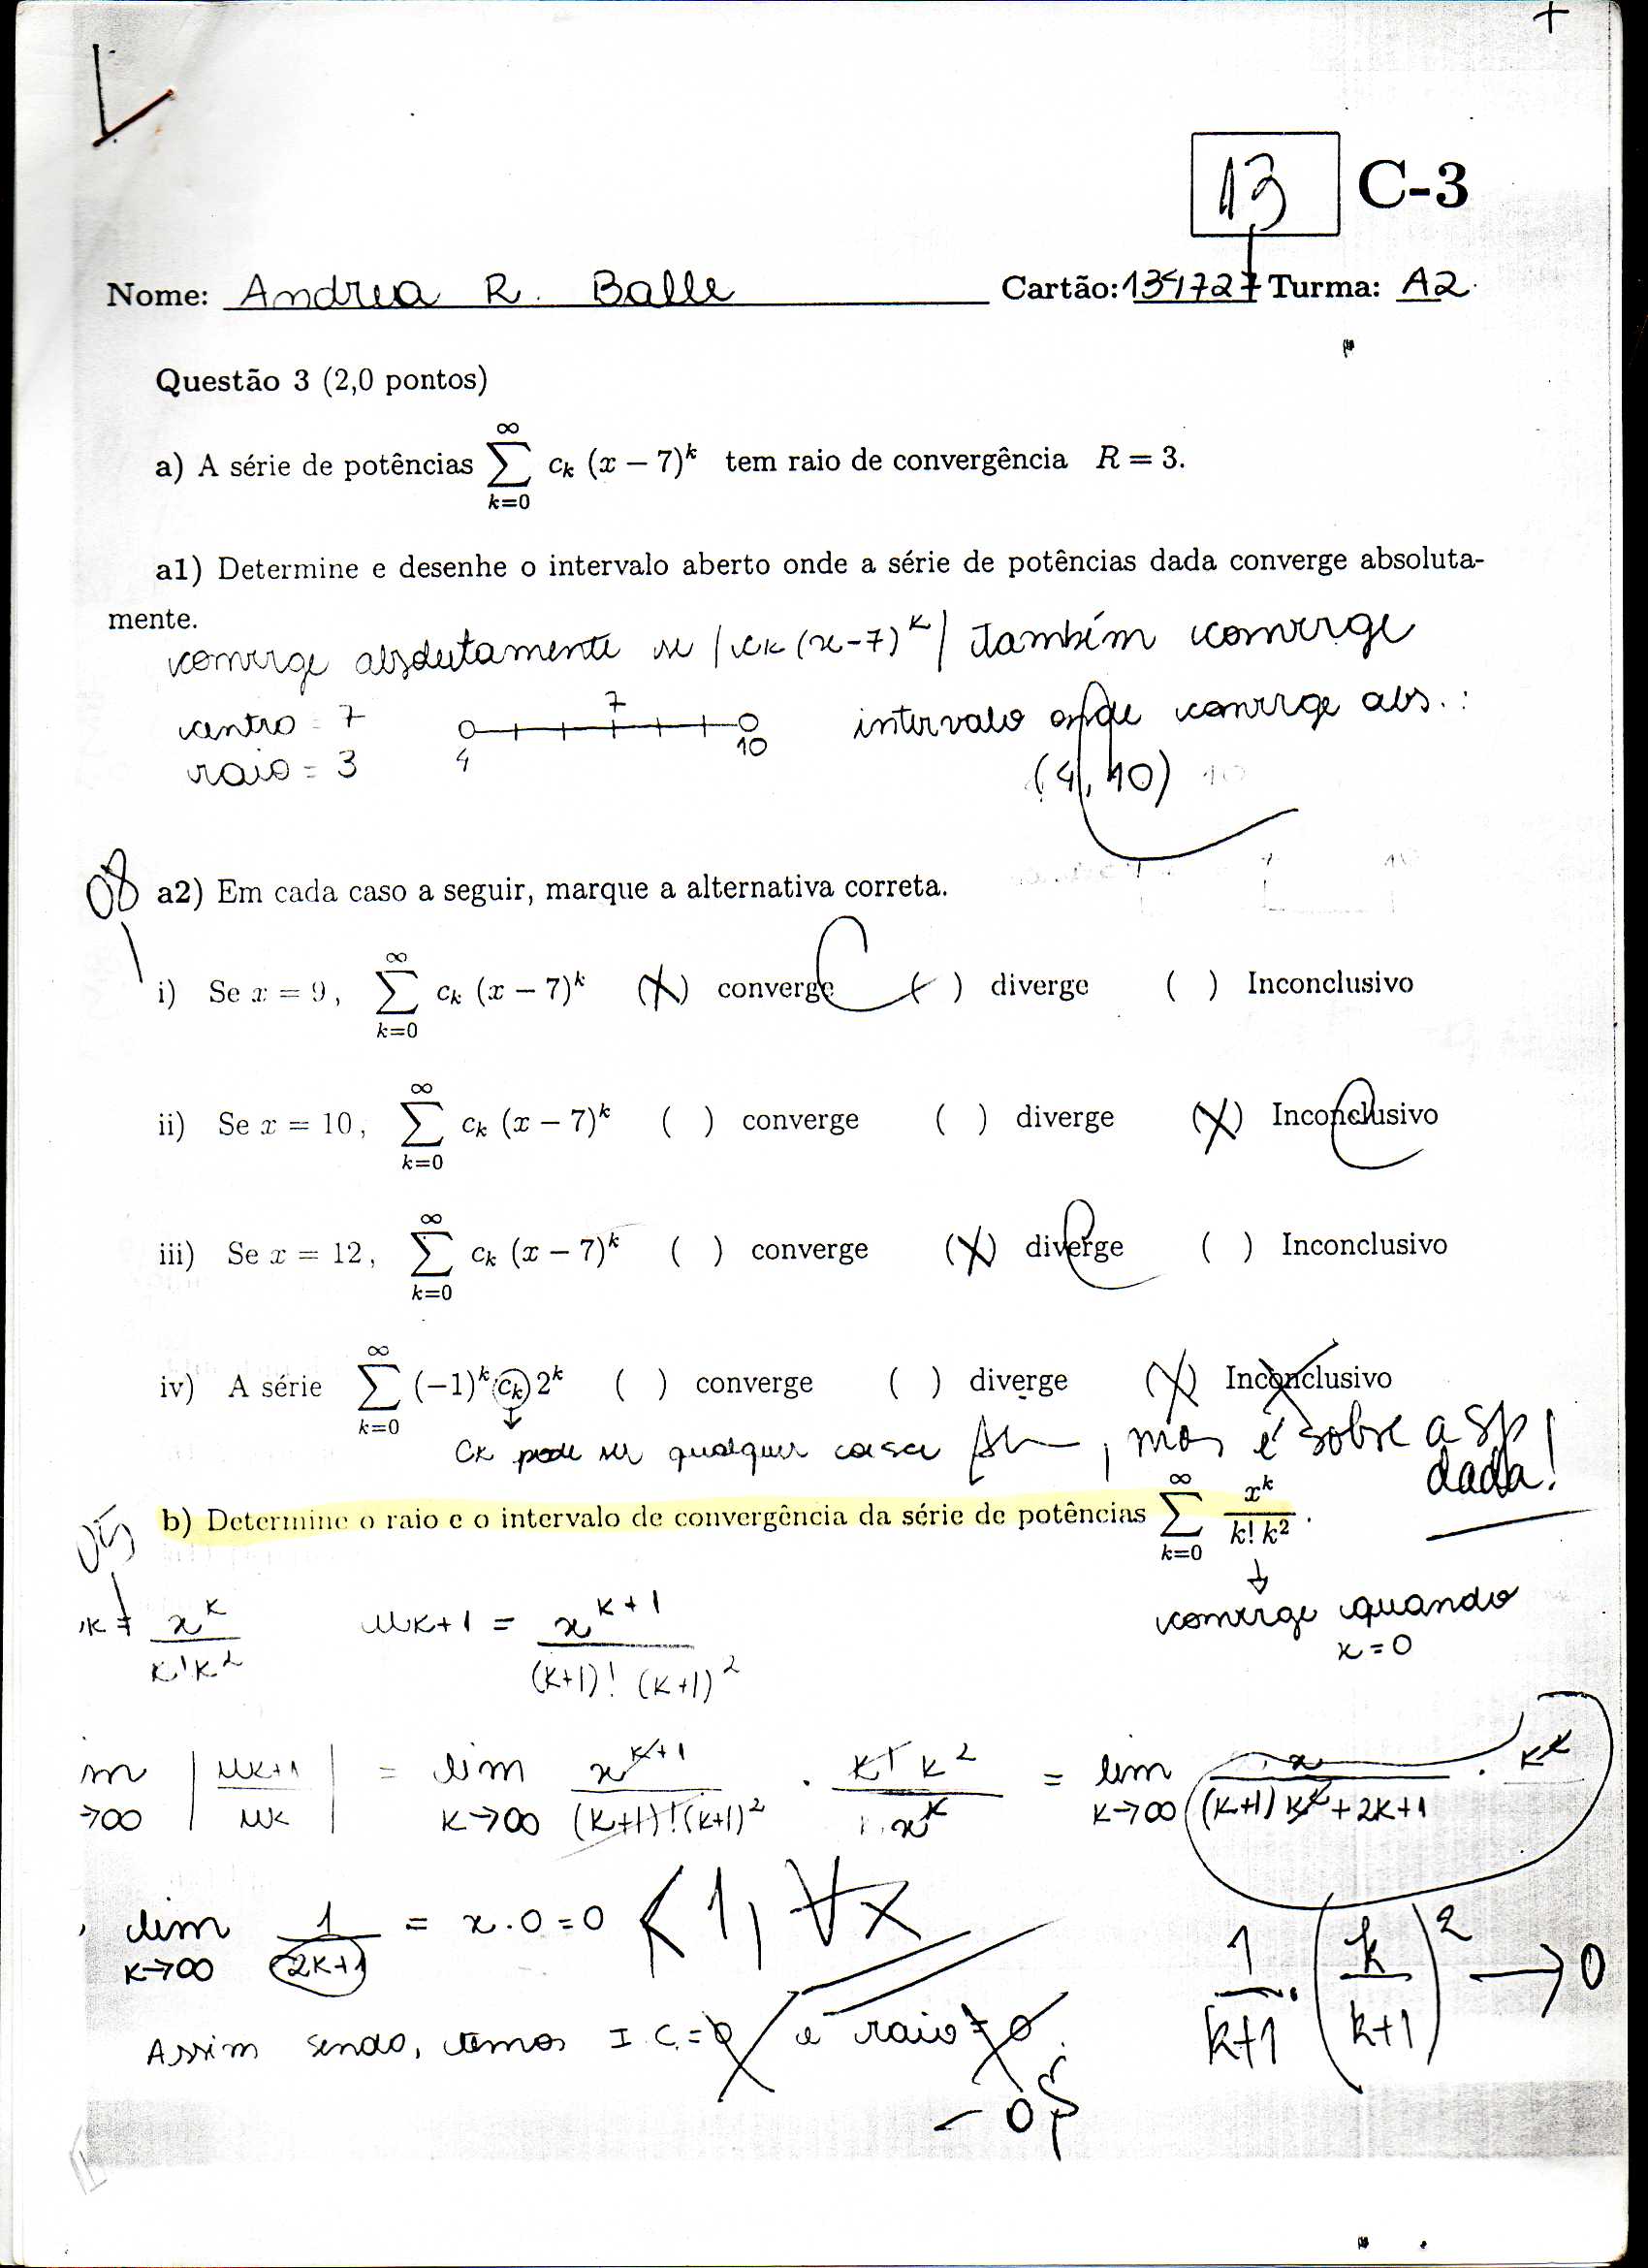 +
13 C-3
Nome: Andrea R. Balle Cartão: 134727 Turma: A2
Questão 3 (2,0 pontos)
a) A série de potências ∑_{k=0}^{∞} c_k (x − 7)^k tem raio de convergência R = 3.
a1) Determine e desenhe o intervalo aberto onde a série de potências dada converge absoluta-
mente.
converge absolutamente se |ck (x-7)^k| também converge
centro = 7
raio = 3
7
4 10
intervalo onde converge abs.:
(4, 10)
08
a2) Em cada caso a seguir, marque a alternativa correta.
i) Se x = 9, ∑_{k=0}^{∞} c_k (x − 7)^k (X) converge ( ) diverge ( ) Inconclusivo
ii) Se x = 10, ∑_{k=0}^{∞} c_k (x − 7)^k ( ) converge ( ) diverge (X) Inconclusivo
iii) Se x = 12, ∑_{k=0}^{∞} c_k (x − 7)^k ( ) converge (X) diverge ( ) Inconclusivo
iv) A série ∑_{k=0}^{∞} (−1)^k c_k 2^k ( ) converge ( ) diverge (X) Inconclusivo
ck pode ser qualquer coisa
, mas é sobre a SP
dada!
05
b) Determine o raio e o intervalo de convergência da série de potências ∑_{k=0}^{∞} x^k / (k! k^2).
↓
converge quando
x = 0
k = x^k / (k! k^2) uk+1 = x^{k+1} / ((k+1)! (k+1)^2)
im →∞ |uk+1 / uk| = lim k→∞ x^{k+1} / ((k+1)! (k+1)^2) · k! k^2 / x^k = lim k→∞ x / ((k+1) k^2 + 2k + 1) · k^2
lim k→∞ 1 / (2k+1) = x · 0 = 0 < 1, ∀x
1/(k+1) · (k/(k+1))^2 → 0
Assim sendo, temos I.C. = 0 e raio = 0.
- 05